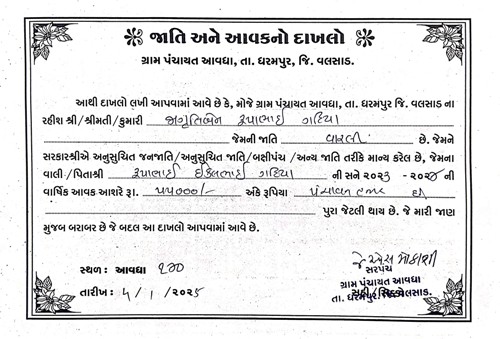 જાતિ અને આવકનો દાખલો
ગ્રામ પંચાયત આવધા, તા. ધરમપુર, જિ. વલસાડ.
આથી દાખલો લખી આપવામાં આવે છે કે, મોજે ગ્રામ પંચાયત આવધા, તા. ધરમપુર જિ. વલસાડ ના
રહીશ શ્રી/શ્રીમતી/કુમારી જાગૃતિબેન રૂપાભાઈ ગટિયા
જેમની જાતિ વારલી છે. જેમને
સરકારશ્રીએ અનુસુચિત જનજાતિ/અનુસુચિત જાતિ/બક્ષીપંચ /અન્ય જાતિ તરીકે માન્ય કરેલ છે, જેમના
વાલી/પિતાશ્રી રૂપાભાઈ ગટિયા ની સને ૨૦૨૩ - ૨૦૨૪ ની
વાર્ષિક આવક આશરે રૂા. ૫૫૦૦૦/- અંકે રૂપિયા પંચાવન હજાર
પુરા જેટલી થાય છે. જે મારી જાણ
મુજબ બરાબર છે જે બદલ આ દાખલો આપવામાં આવે છે.
સ્થળ : આવધા
તારીખ : ૫/૧/૨૦૨૫
સરપંચ
ગ્રામ પંચાયત આવધા
તા. ધરમપુર, જિ. વલસાડ.